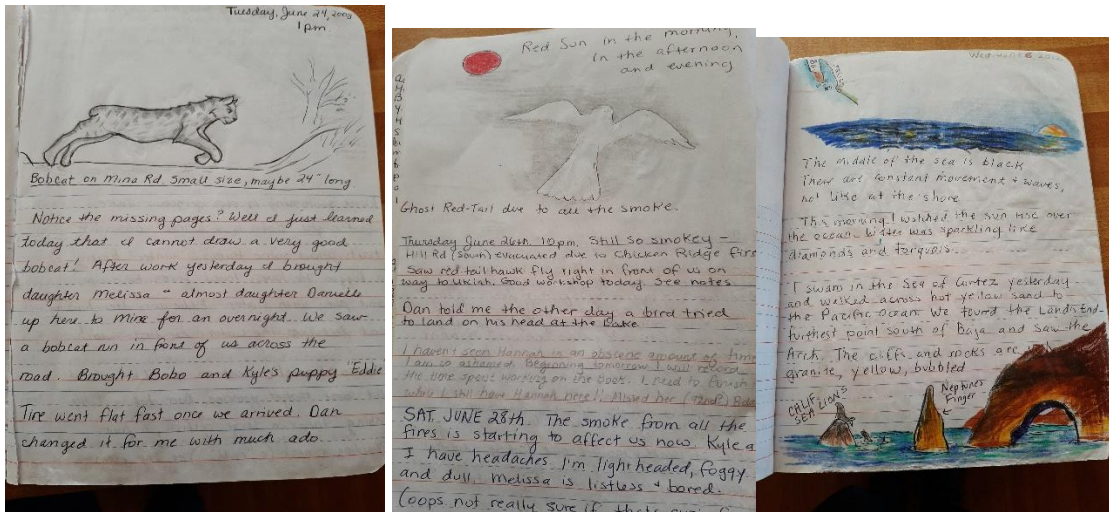 Tuesday, June 24, 2008
1 pm
Bobcat on Mina Rd. Small size, maybe 24" long
Notice the missing pages? Well I just learned
today that I cannot draw a very good
bobcat! After work yesterday I brought
daughter Melissa + almost daughter Danielle
up here to Mina for an overnight. We saw
a bobcat run in front of us across the
road. Brought Bobo and Kyle's puppy "Eddie"
Tire went flat fast once we arrived. Dan
changed it for me with much ado.
Red Sun in the morning,
in the afternoon
and evening
Ghost Red-Tail due to all the smoke.
Thursday June 26th, 10pm, Still so smokey –
Hill Rd (South) evacuated due to Chicken Ridge Fire
Saw red tail hawk fly right in front of us on
way to Ukiah. Good workshop today. See notes
Dan told me the other day a bird tried
to land on his head at the lake
I haven't seen Hannah in an obscene amount of time
I am so ashamed. Beginning tomorrow I will record
the time spent working on the book. I need to finish
while I still have Hannah here! Missed her
SAT. JUNE 28th. The smoke from all the
fires is starting to affect us now. Kyle a
I have headaches I'm lightheaded, foggy
and dull. Melissa is listless + bored.
Coops not really sure if thats
The middle of the sea is black
There are constant movement + waves,
not like at the shore
This morning I watched the sun rise over
the ocean. Water was sparkling like
diamonds and torquois.
I swam in the Sea of Cortez yesterday
and walked across hot yellow sand to
the Pacific Ocean. We toured the Lands End-
furthest point south of Baja and saw the
Arch. The cliffs and rocks are
granite, yellow, bubbled
CALIF
SEA LIONS
Neptunes
Finger